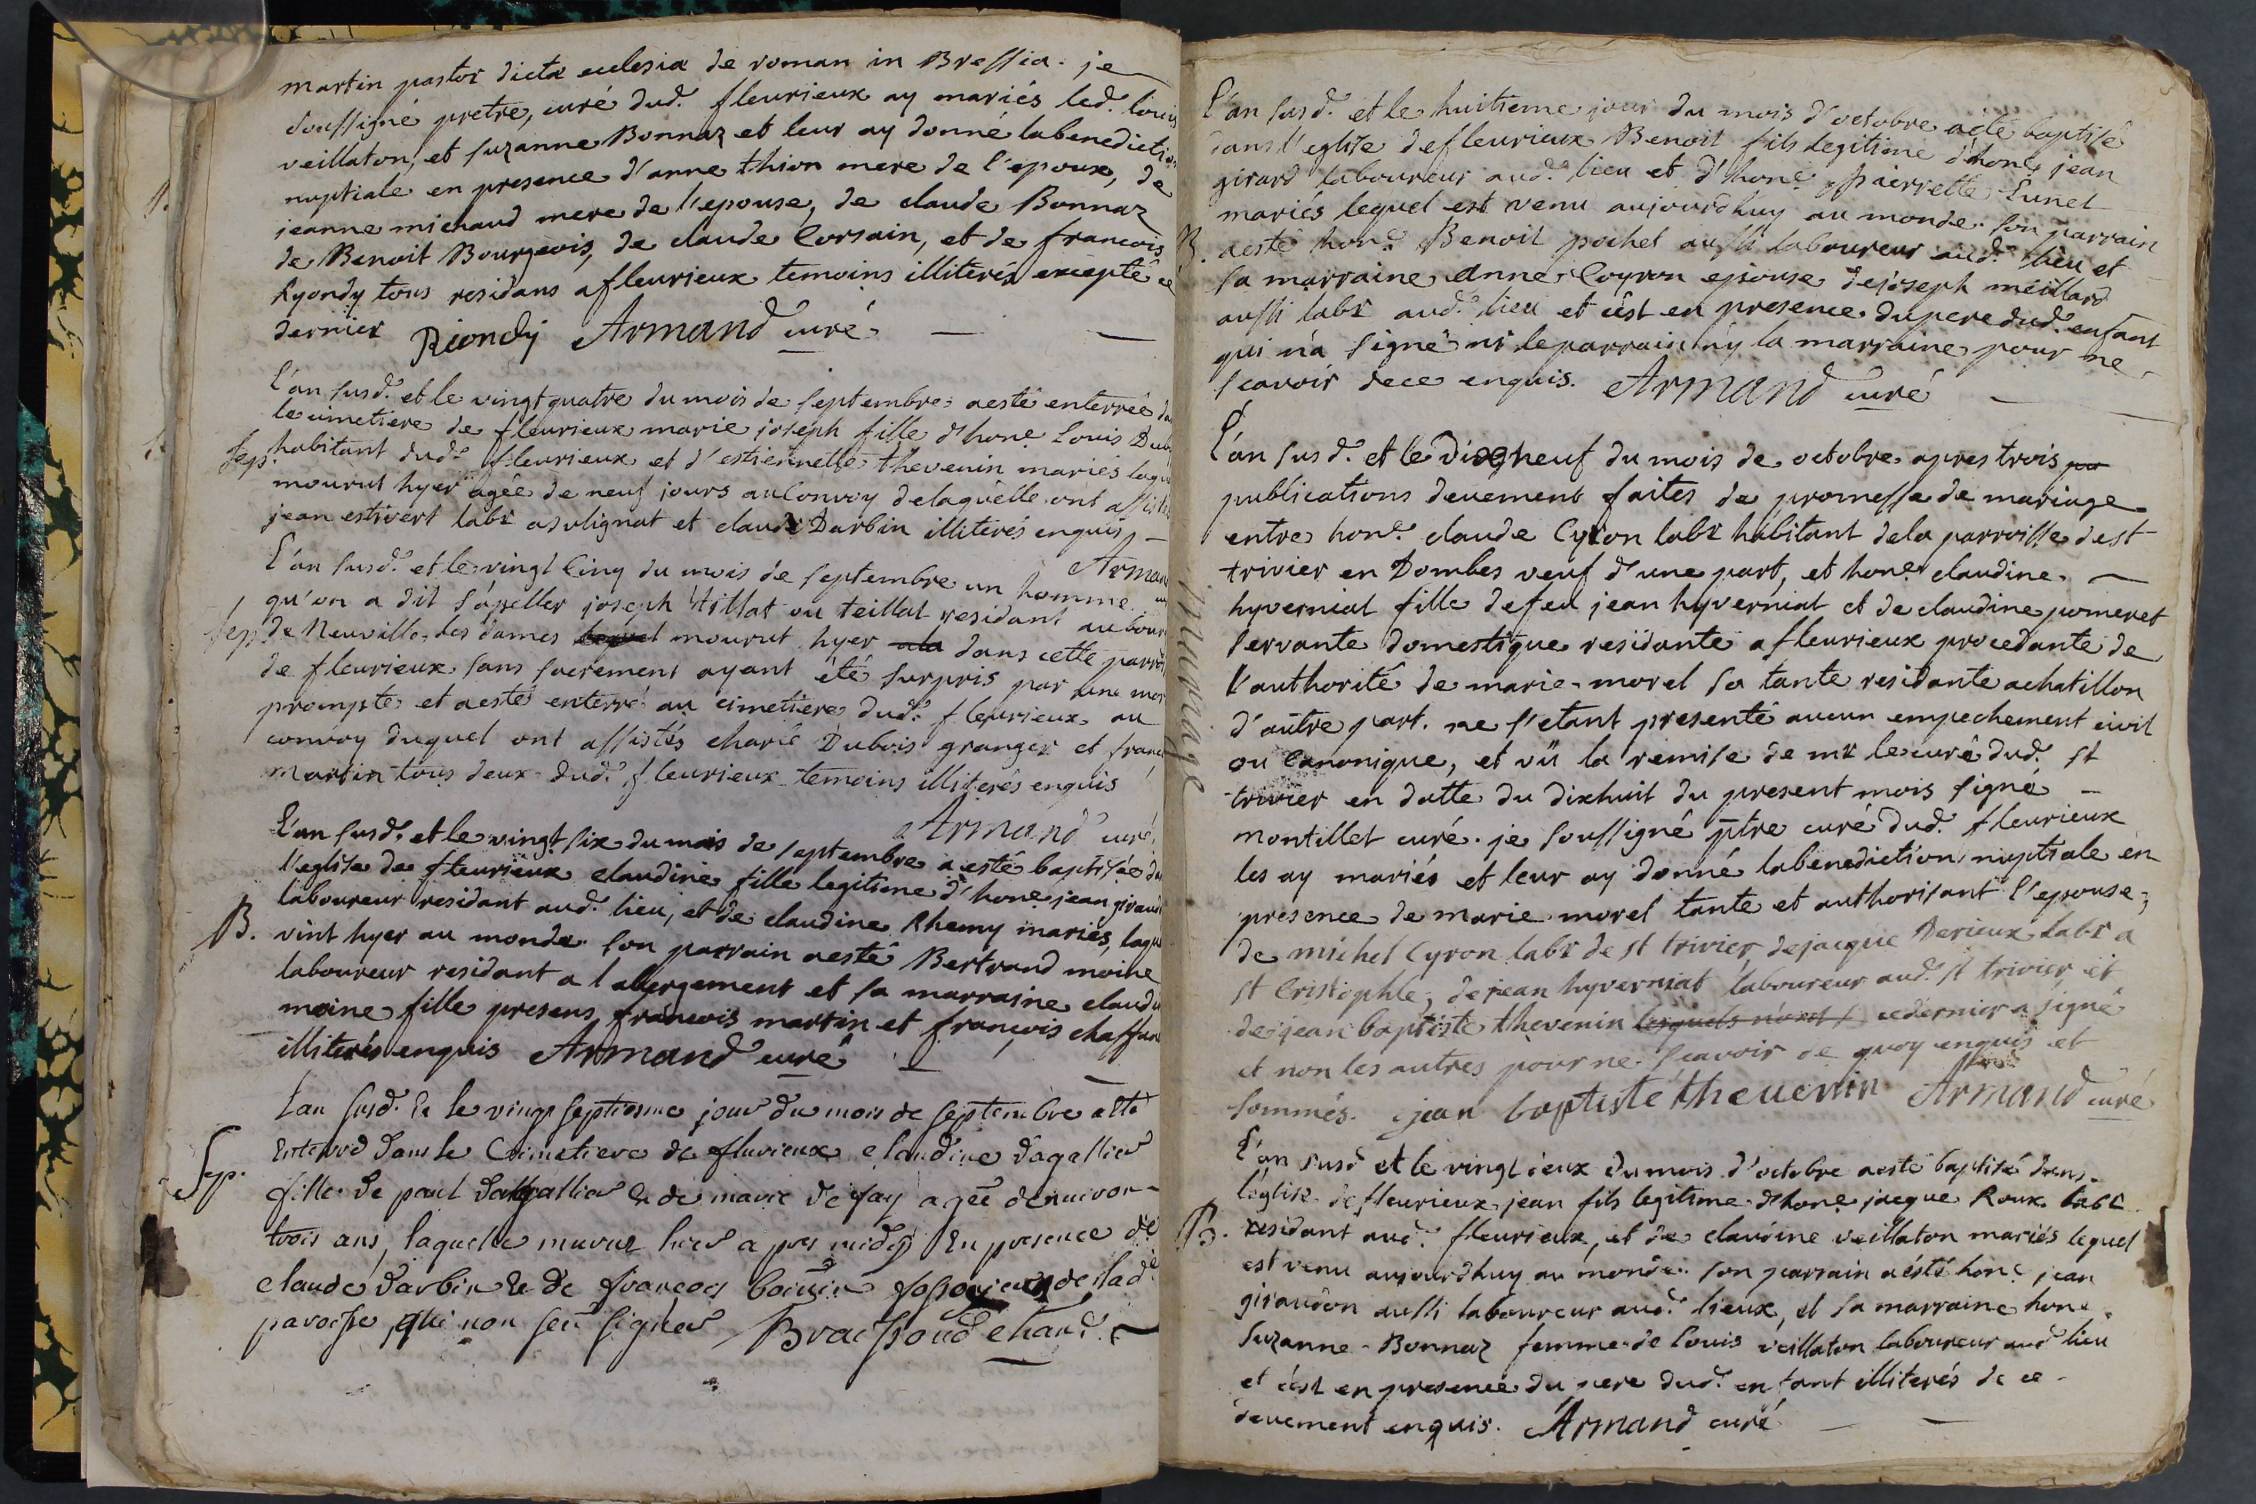 martin pastor dicta eclesia de roman in Bressia. je
soussigné pretre, curé dud. fleurieux ay mariés led. louis
veillaton, et suzanne Bonnaz et leur ay donné labenediction
nuptiale en presence d'anne thion mere de l'epoux, de
jeanne michaud mere de l'epouse, de claude Bonnaz
de Benoit Bourgeois, de claude Corsain, et de francois
Ryondy tous residans a fleurieux temoins illiterés excepté ce
dernier Riondy Armand curé
l'an susd. et le vingt quatre du mois de septembre aesté enterrée
le cimetiere de fleurieux marie joseph fille d'hone Louis
Sep. habitant dud. fleurieux et d'estiennette thevenin mariés
mourut hyer agée de neuf jours au Convoy delaquelle ont
jean estivert labr a sulignat et claude Darbin illiterés enquis
Armand
L'an susd. et le vingt Cinq du mois de septembre un homme
qu'on a dit s'apeller joseph tillat ou teillat residant au bourg
Sep. de Neuville les dames mourut hyer dans cette
de fleurieux sans sacrement ayant été surpris par une mort
prompte et aesté enterré au cimetiere dud. fleurieux au
convoy duquel ont assistés charle Dubois granger et
martin tous deux dud. fleurieux temoins illiterés enquis
Armand curé
L'an susd. et le vingt six du mois de septembre a esté baptisée
l'eglise de fleurieux claudine fille legitime d'hone jean giraud
laboureur residant aud. lieu, et de claudine Rhemy mariés,
B. vint hyer au monde. son parrain aesté Bertrand moine
laboureur residant a labergement et sa marraine
moine fille presens françois martin et françois
illiterés enquis Armand curé
Lan susd. et le vingt septiesme jour du mois de septembre a été
Enterré dans le Cimetiere de fluvieux claudine dagallier
Sep. fille de paul dagallier et de marie defay agée denviron
trois ans, laquelle mourut hier apres midy En presence de
claude darbin et de françois de lad.
paroisse, qui non seü signer Braissoud chan.
L'an susd. et le huitieme jour du mois d'octobre aeté baptisé
dans l'eglise de fleurieux Benoit fils legitime d'hone jean
girard laboureur aud. lieu et d'hone pierrette Lunet
mariés lequel est venu aujourdhuy au monde. son parrain
B. aesté hone Benoit pochet aussi laboureur aud. lieu et
sa marraine Anne Coyron epouse dejoseph meillard
aussi labr aud. lieu et c'est en presence du pere dud. enfant
qui n'a signé ni le parrain ny la marraine pour ne
scavoir dece enquis. Armand curé
mariage
L'an susd. et le dixneuf du mois de octobre apres trois
publications deuement faites de promesse de mariage
entre hon. claude Cyron labr habitant dela parroisse dest
trivier en Dombes veuf d'une part, et hone claudine
hyverniat fille defeu jean hyverniat et de claudine pomeret
servante domestique residante a fleurieux procedante de
l'authorité de marie morel sa tante residante achatillon
d'autre part. ne s'etant presenté aucun empechement civil
ou Canonique, et vü la remise de mr lecuré dud. st
trivier en datte du dixhuit du present mois signé
montillet curé. je soussigné ptre curé dud. fleurieux
les ay mariés et leur ay donné labenediction nuptiale en
presence de marie morel tante et authorisant l'epouse,
de michel Cyron labr de st trivier, dejacque Derieux labr a
st Cristophle, dejean hyverniat laboureur aud. st trivier et
dejean baptiste thevenin lesquels n'ont cedernier a signé
et non les autres pour ne scavoir de quoy enquis et
sommés. jean baptiste theuenin Armand curé
L'an susd et le vingt deux du mois d'octobre aesté baptisé dans
l'eglise de fleurieux jean fils legitime d'hone jacque Roux labr
B. residant aud. fleurieux, et de claudine veillaton mariés lequel
est venu aujourdhuy au monde. son parrain aésté hone jean
giraudon aussi laboureur aud. lieux, et sa marraine hone
Suzanne Bonnaz femme de louis veillaton laboureur aud lieu
et c'est en presence du pere dud. enfant illiterés de ce
deuement enquis. Armand curé